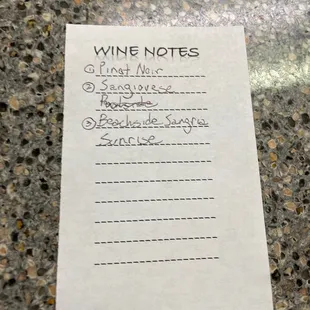 WINE NOTES
① Pinot Noir
② Sangiovese
③ Beachside Sangria
Sunrise